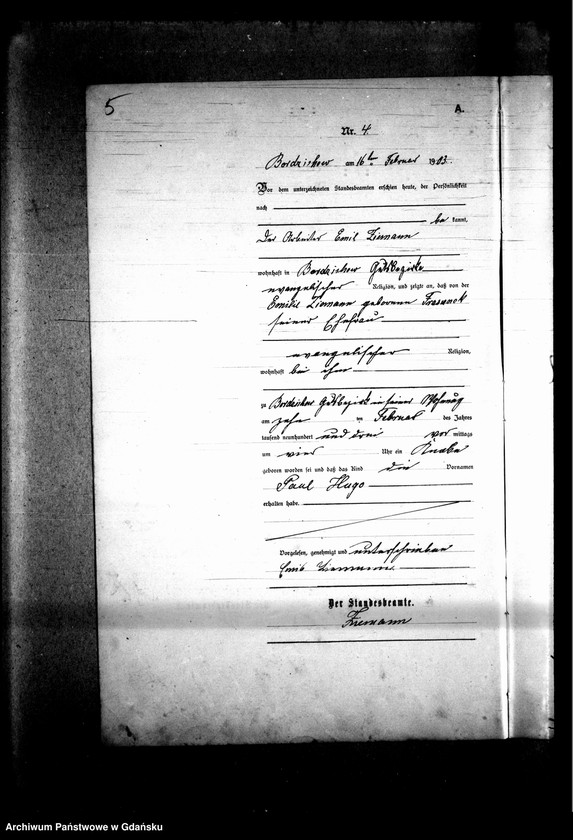 5
A.
Nr. 4
Bordzichow am 16ten Februar 1903.
Vor dem unterzeichneten Standesbeamten erschien heute, der Persönlichkeit
nach
be kannt,
Der Arbeiter Emil Ziemann
wohnhaft in Bordzichow Gutsbezirk
evangelischer Religion, und zeigte an, daß von der
Ziemann geborenen
seiner Ehefrau
evangelischer Religion,
wohnhaft bei ihm
zu Bordzichow Gutsbezirk in seiner Wohnung
am zehn ten Februar des Jahres
tausend neunhundert und drei vor mittags
um vier Uhr ein Knabe
geboren worden sei und daß das Kind die Vornamen
Paul Hugo
erhalten habe.
Vorgelesen, genehmigt und unterschrieben
Emil Ziemann.
Der Standesbeamte.
Ziemann
Archiwum Państwowe w Gdańsku